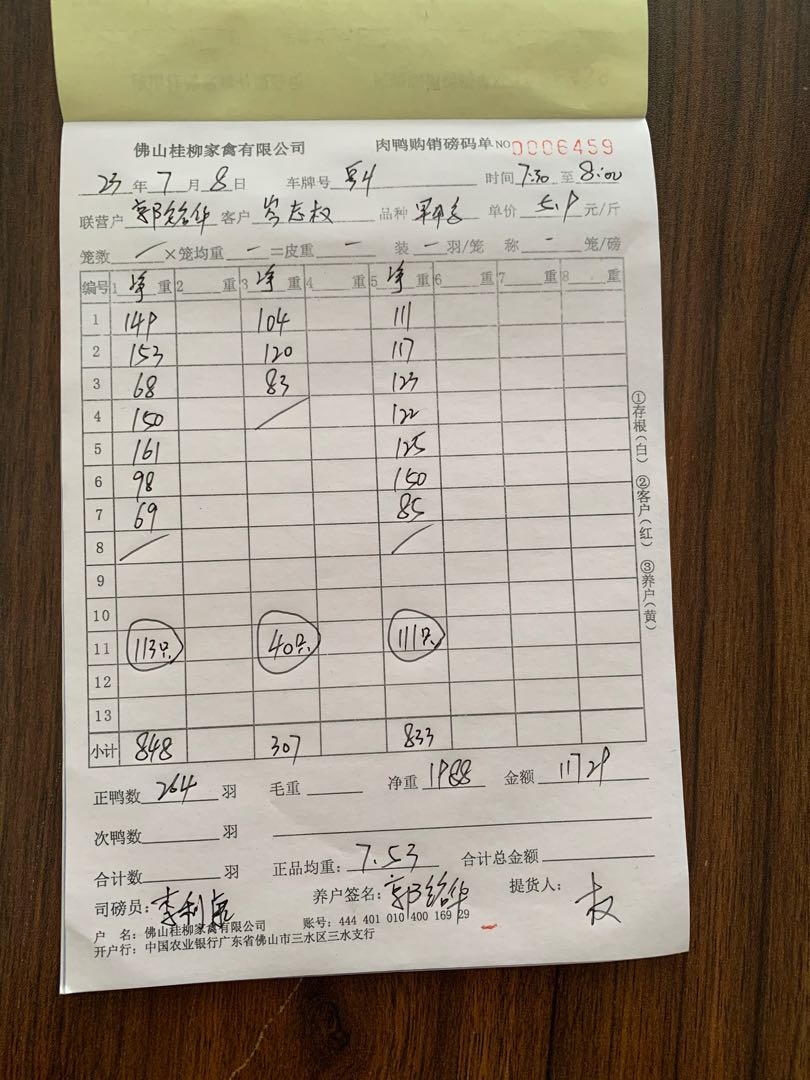 佛山桂柳家禽有限公司 肉鸭购销磅码单 NO 0006459
23年7月8日 车牌号 时间7:30至8:00
联营户 郭绍华 客户 岑志权 品种 单价 5.9 元/斤
笼数 / ×笼均重 — =皮重 — 装 — 羽/笼 称 — 笼/磅
编号 1 净 重 2 重 3 净 重 4 重 5 净 重 6 重 7 重 8 重
1 149 104 111
2 153 120 117
3 68 83 123
4 150 / 122
5 161 125
6 98 150
7 69 85
8 / /
9
10
11 113只 40只 111只
12
13
小计 848 307 833
正鸭数 264 羽 毛重 净重 1988 金额 11729
次鸭数 羽
合计数 羽 正品均重: 7.53 合计总金额
司磅员: 养户签名: 郭绍华 提货人: 权
户 名: 佛山桂柳家禽有限公司 账号: 444 401 010 400 169 29
开户行: 中国农业银行广东省佛山市三水区三水支行
①存根(白) ②客户(红) ③养户(黄)